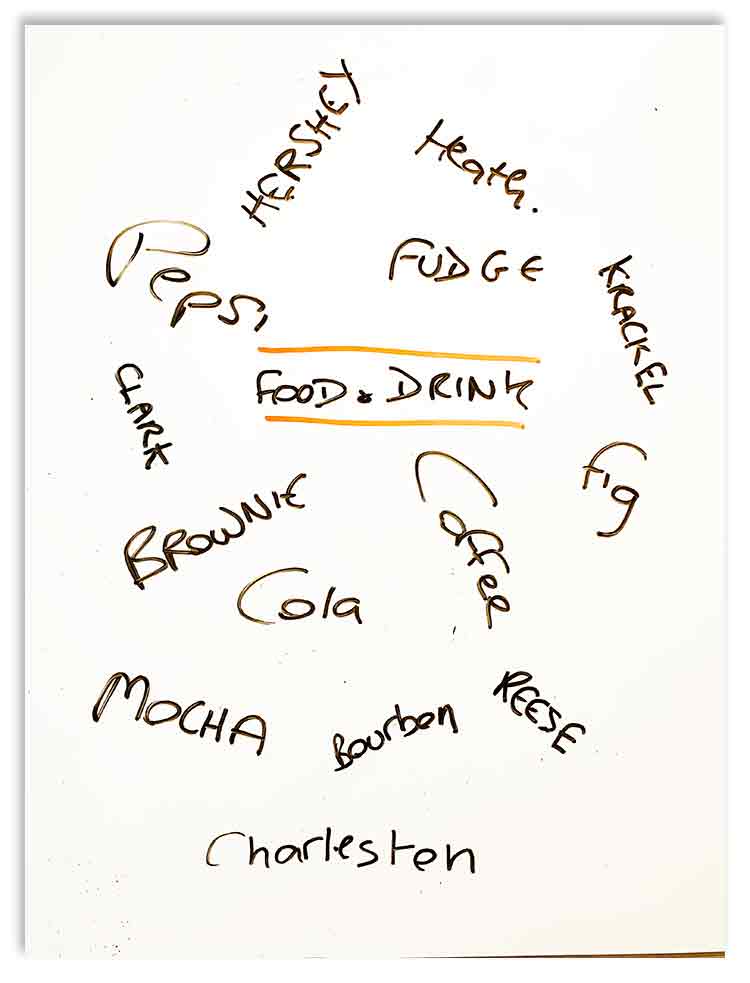 HERSHEY
Heath.
Pepsi
FUDGE
KRACKEL
FOOD & DRINK
CLARK
Fig
BROWNIE
Coffee
Cola
MOCHA
Bourbon
REESE
Charleston